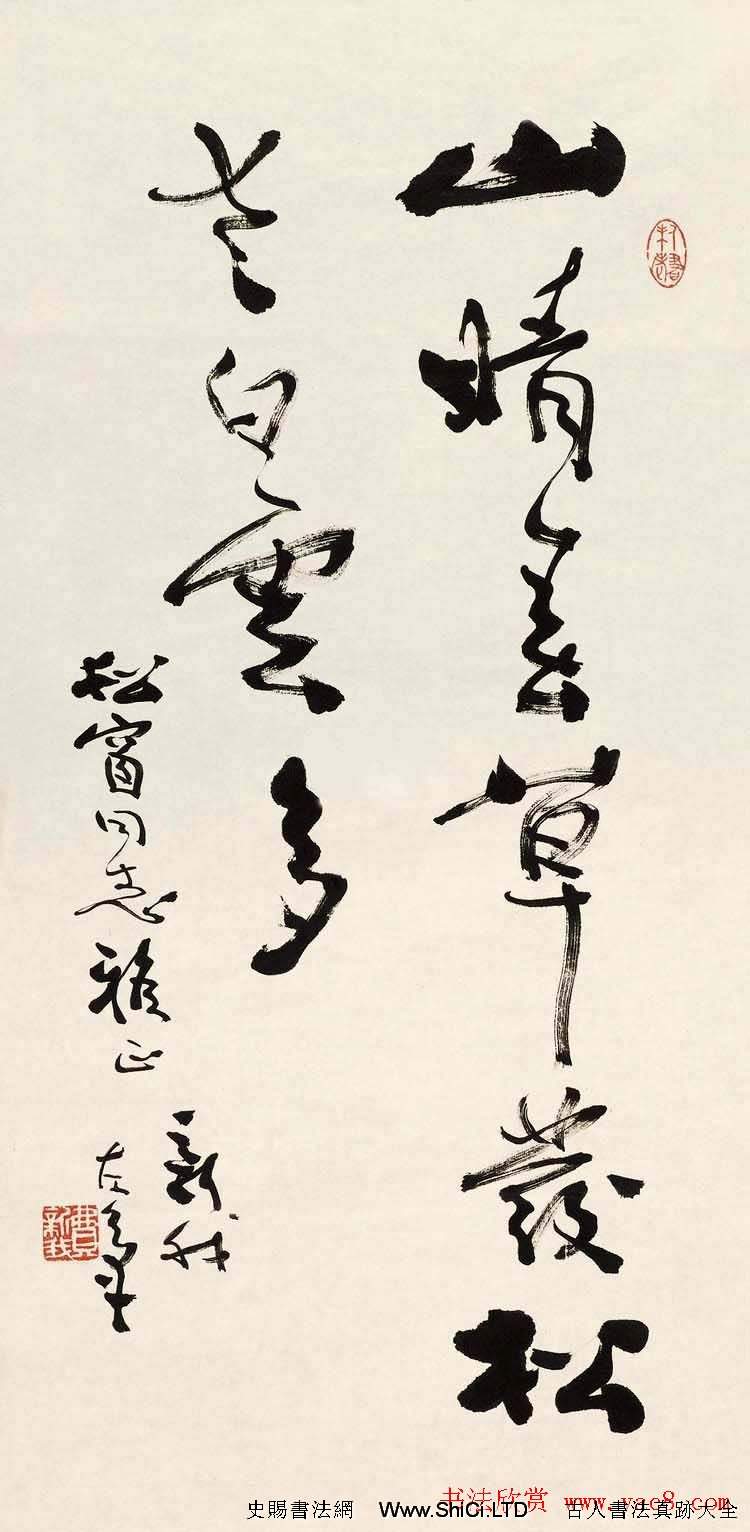 山晴草發松
老白雲多
松窗同志雅正
新我
左筆
費新我
书法欣赏 www.yac8.com
史賜書法網 Www.ShiCi.LTD 古人書法真跡大全